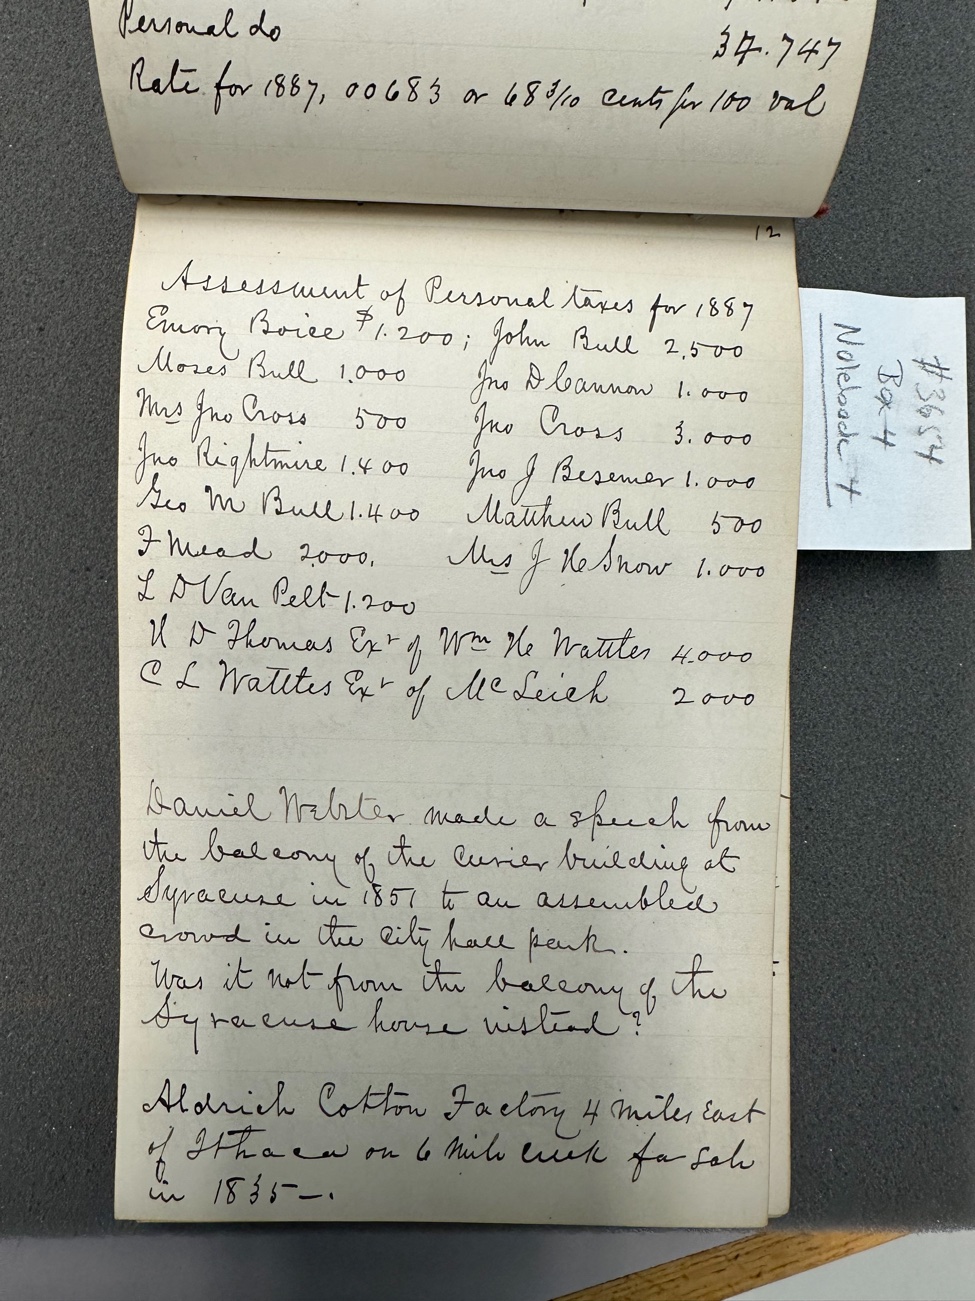 Personal do 37.747
Rate for 1887, 00683 or 68 3/10 cents per 100 val
12
Assessment of Personal taxes for 1887
Emory Boice $1.200; John Bull 2,500
Moses Bull 1.000 Jno D Cannon 1.000
Mrs Jno Cross 500 Jno Cross 3.000
Jno Rightmire 1.400 Jno J Besemer 1.000
Geo M Bull 1.400 Matthew Bull 500
F Mead 2,000, Mrs J H Snow 1.000
L D Van Pelt 1.200
H D Thomas Exr of Wm H Wattles 4.000
C L Wattles Exr of Mc Leich 2000
Daniel Webster made a speech from
the balcony of the curier building at
Syracuse in 1851 to an assembled
crowd in the city hall park.
Was it not from the balcony of the
Syracuse house instead?
Aldrich Cotton Factory 4 miles East
of Ithaca on 6 Mile creek for sale
in 1835—.
#3654
Box 4
Notebook 4